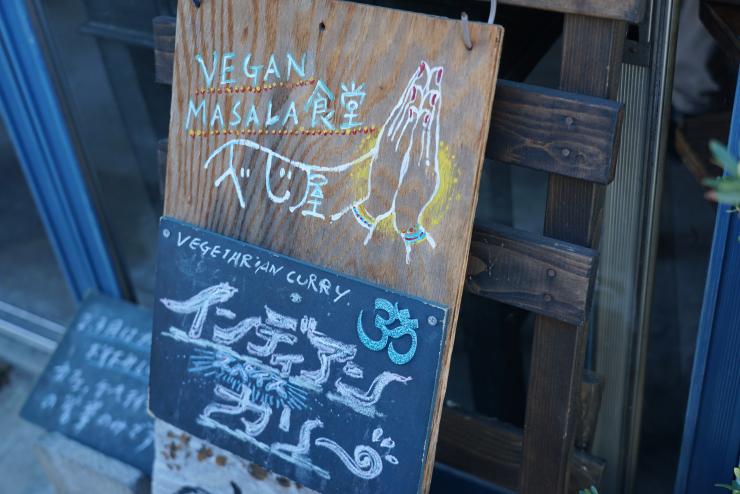 VEGAN
MASALA食堂
べじ屋
VEGETARIAN CURRY
インディアン
スパイス
カリー
ॐ